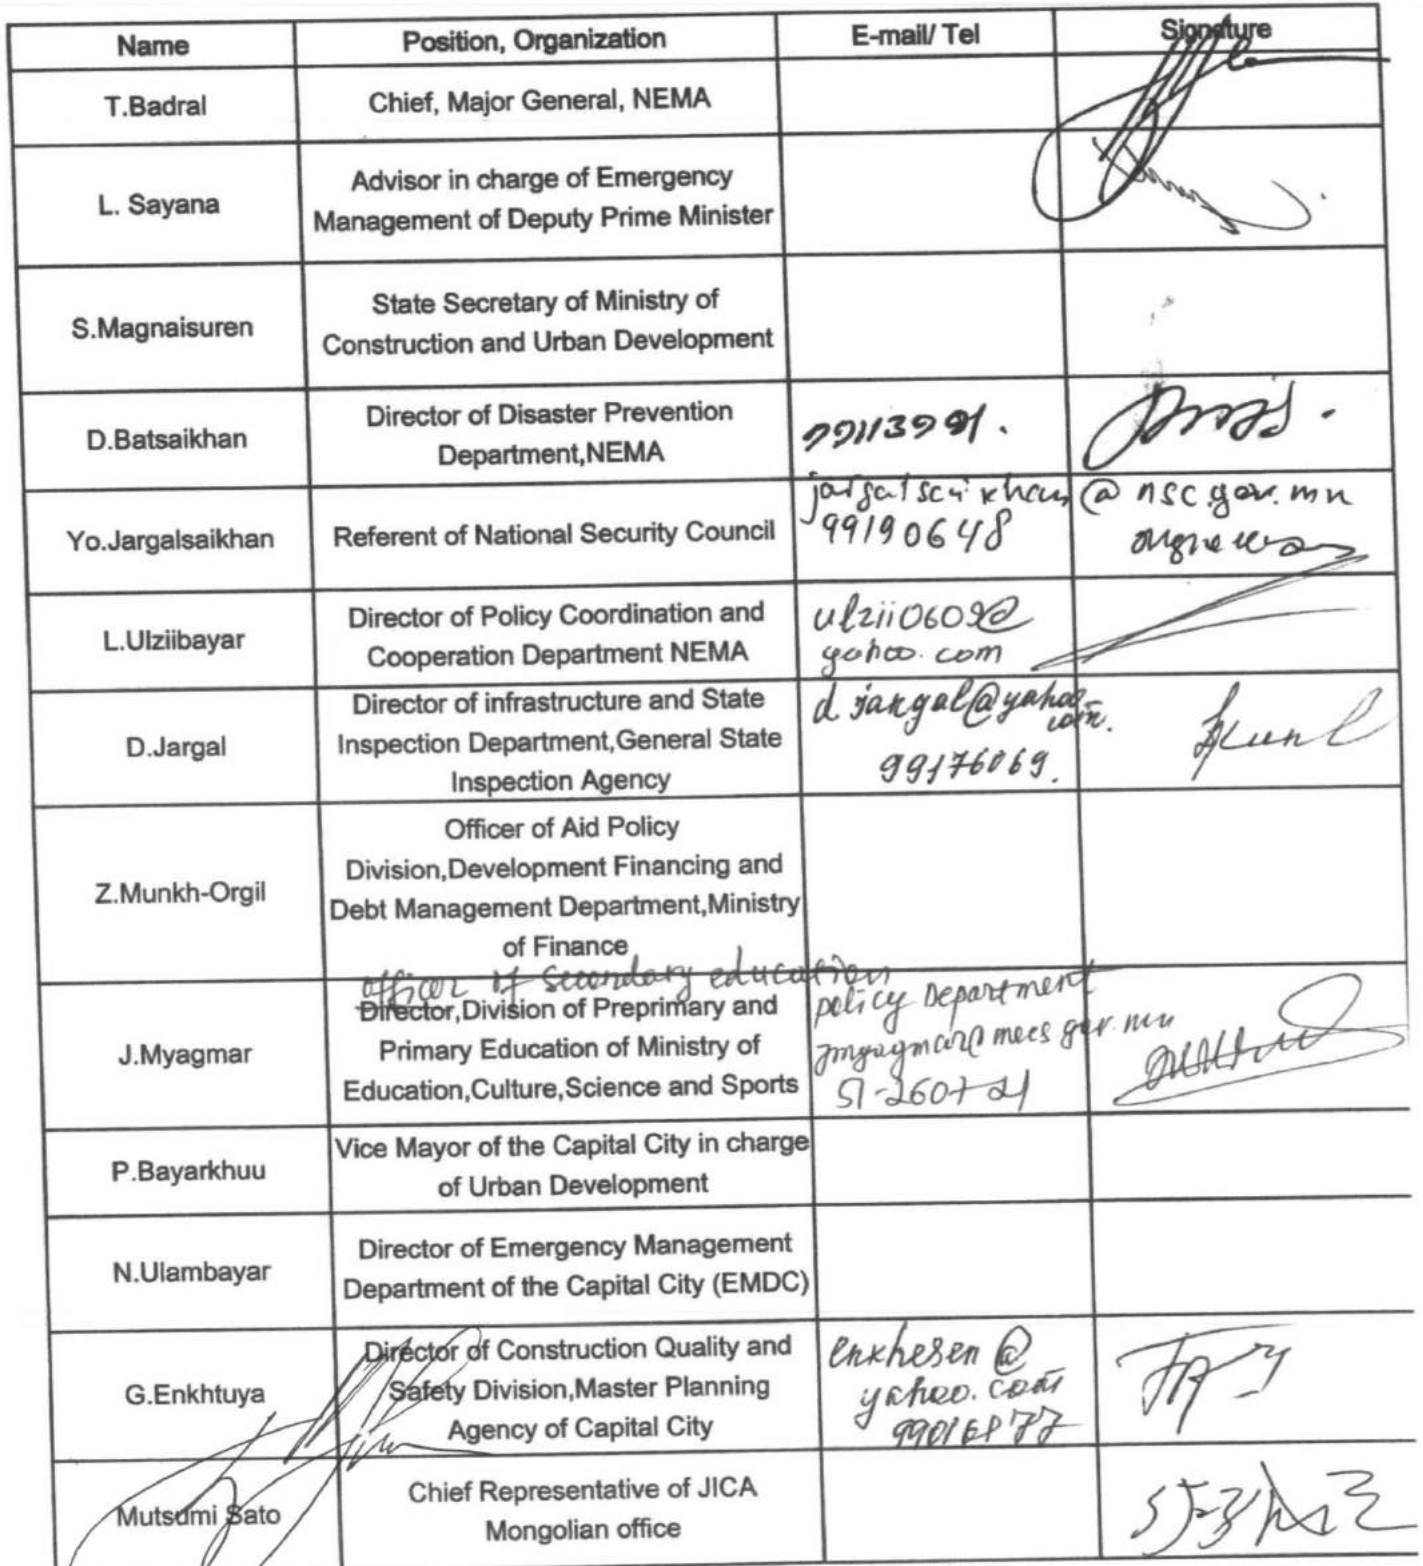 Name Position, Organization E-mail/ Tel Signature
T.Badral Chief, Major General, NEMA
L. Sayana Advisor in charge of Emergency
Management of Deputy Prime Minister
S.Magnaisuren State Secretary of Ministry of
Construction and Urban Development
D.Batsaikhan Director of Disaster Prevention
Department,NEMA
Yo.Jargalsaikhan Referent of National Security Council
jargalsaikhan@nsc.gov.mn
99190648
L.Ulziibayar Director of Policy Coordination and
Cooperation Department NEMA
ulzii0609@
yahoo.com
D.Jargal Director of infrastructure and State
Inspection Department,General State
Inspection Agency
d.jargal@yahoo.
com.
99176069.
Z.Munkh-Orgil Officer of Aid Policy
Division,Development Financing and
Debt Management Department,Ministry
of Finance
officer of secondary education
policy Department
J.Myagmar Director,Division of Preprimary and
Primary Education of Ministry of
Education,Culture,Science and Sports
jmyagmar@mecs.gov.mn
51-260721
P.Bayarkhuu Vice Mayor of the Capital City in charge
of Urban Development
N.Ulambayar Director of Emergency Management
Department of the Capital City (EMDC)
G.Enkhtuya Director of Construction Quality and
Safety Division,Master Planning
Agency of Capital City
enkhesen@
yahoo.com
Mutsumi Sato Chief Representative of JICA
Mongolian office